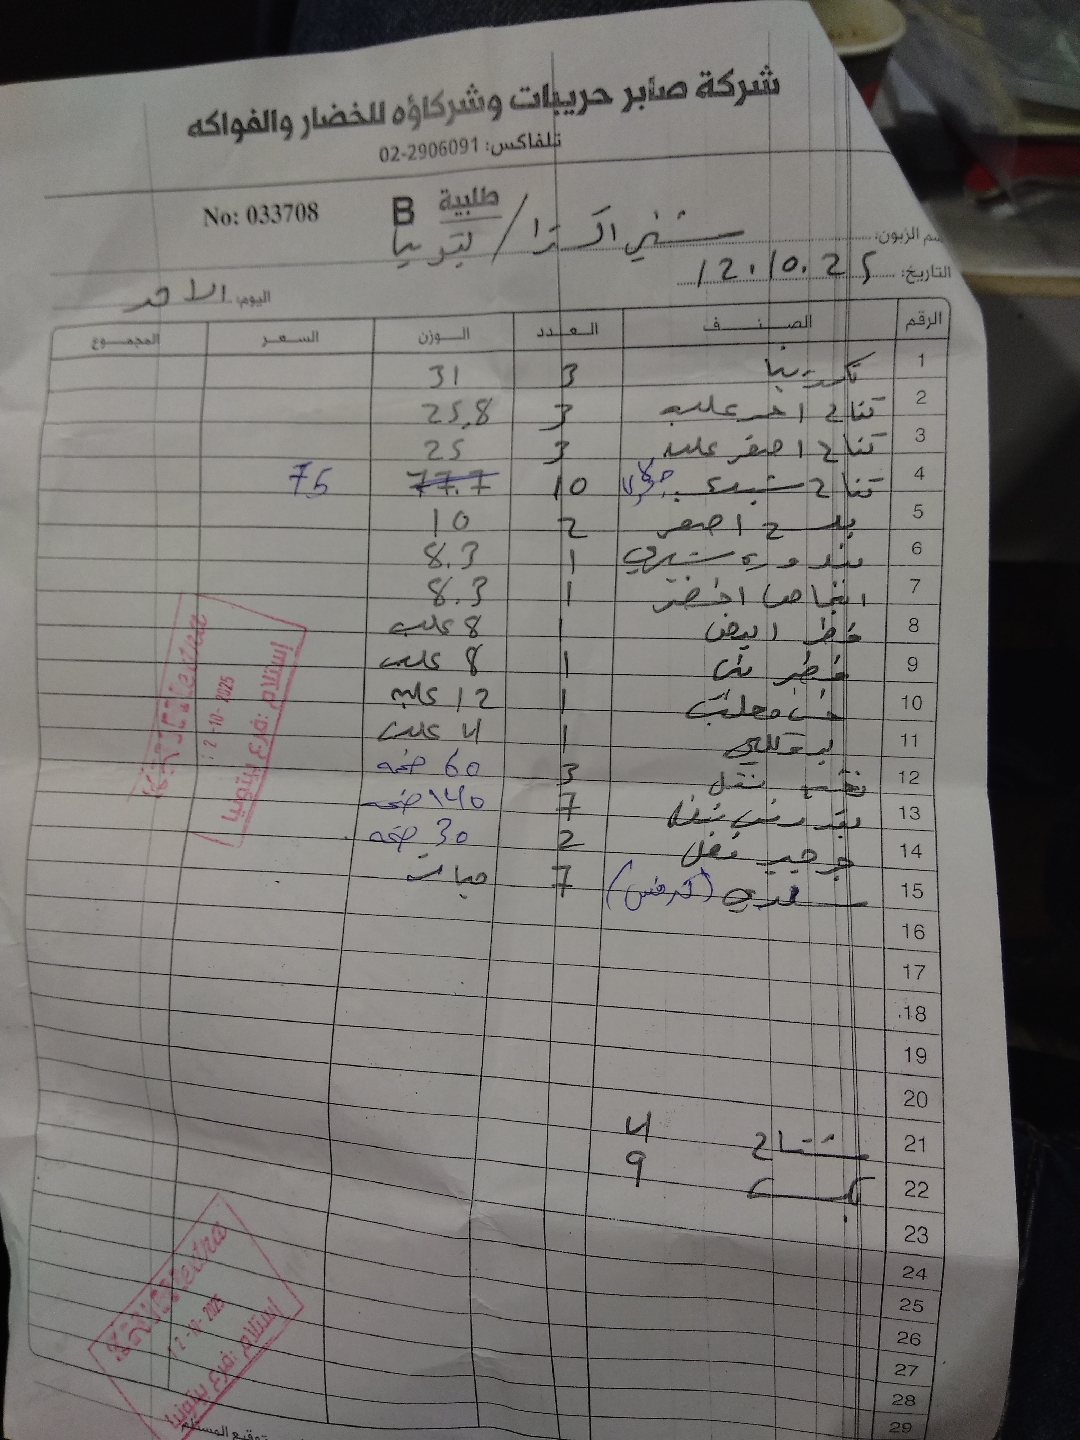 شركة صابر حريبات وشركاؤه للخضار والفواكه
تلفاكس: 02-2906091
No: 033708 B طلبية
اسم الزبون:
التاريخ: 12.10.25
اليوم: الاحد
الرقم الصنف العدد الوزن السعر المجموع
1 3 31
2 تفاح احمر علب 3 25,8
3 تفاح اصفر علب 3 25
4 تفاح 10 77.7 75
5 بلح اصفر 2 10
6 بندوره شيري 1 8.3
7 اخضر 1 8.3
8 فطر ابيض 1 8 علب
9 فطر بني 1 8 علب
10 1 12 علب
11 1 4 علب
12 3 60 ضمه
13 7 140 ضمه
14 جرجير 2 30 ضمه
15 (كرفس) 7 حبات
16
17
18
19
20
21 مشتاح 4
22 9
23
24
25
26
27
28
29
12-10-2025
استلام: فرع بيتونيا
12-10-2025
استلام: فرع بيتونيا
توقيع المستلم